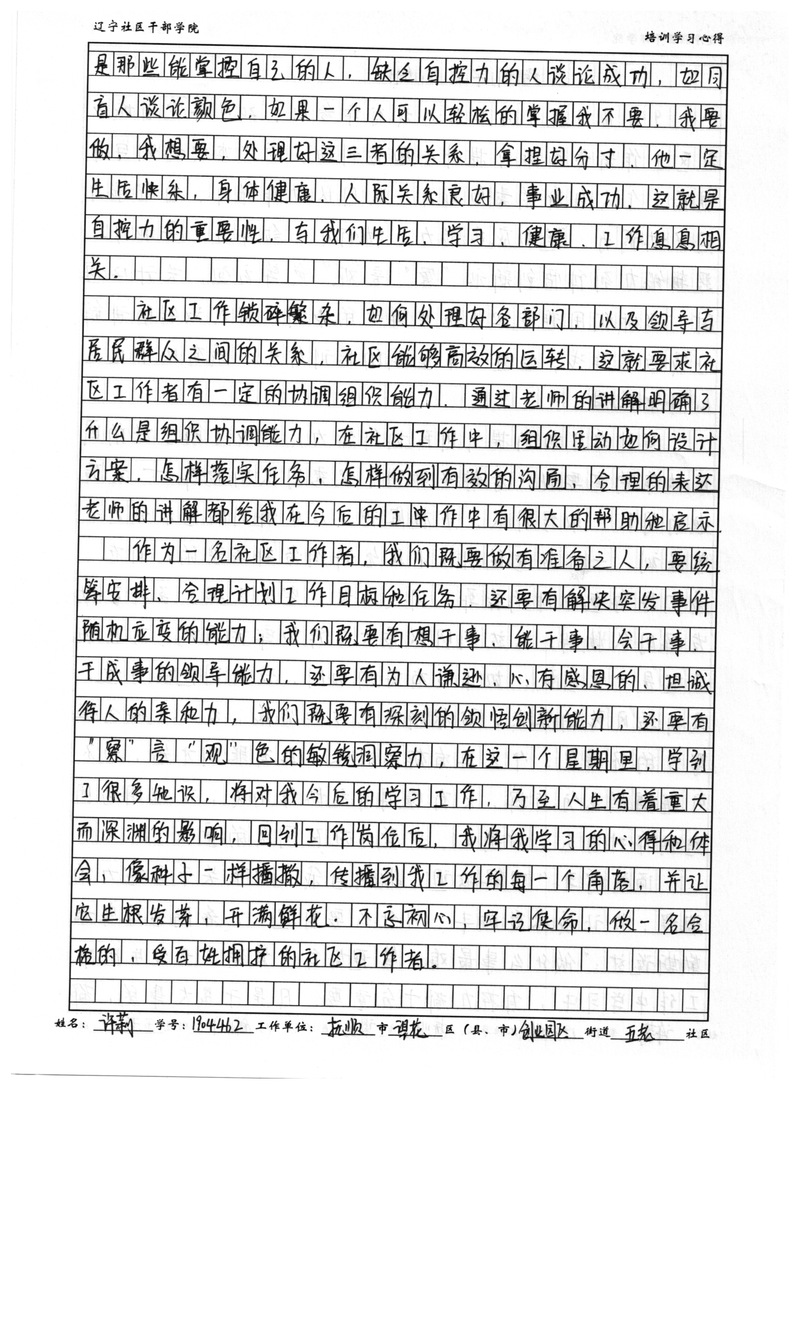 辽宁社区干部学院
培训学习心得
是那些能掌控自己的人，缺乏自控力的人谈论成功，如同
盲人谈论颜色，如果一个人可以轻松的掌握我不要，我要
做，我想要，处理好这三者的关系，拿捏好分寸，他一定
生活快乐，身体健康，人际关系良好，事业成功，这就是
自控力的重要性，与我们生活、学习、健康、工作息息相
关。
社区工作锁碎繁杂，如何处理好各部门，以及领导与
居民群众之间的关系，社区能够高效的运转，这就要求社
区工作者有一定的协调组织能力，通过老师的讲解明确了
什么是组织协调能力，在社区工作中，组织活动如何设计
方案，怎样落实任务，怎样做到有效的沟局，合理的表达
老师的讲解都给我在今后的工作中有很大的帮助和启示
作为一名社区工作者，我们既要做有准备之人，要统
筹安排、合理计划工作目标和任务，还要有解决突发事件
随机应变的能力；我们既要有想干事、能干事、会干事、
干成事的领导能力，还要有为人谦逊、心存感恩的、坦诚
待人的亲和力，我们既要有深刻的领悟创新能力，还要有
“察”言“观”色的敏锐洞察力，在这一个星期里，学到
了很多知识，将对我今后的学习工作，乃至人生有着重大
而深渊的影响，回到工作岗位后，我将我学习的心得和体
会，像种子一样播撒，传播到我工作的每一个角落，并让
它生根发芽，开满鲜花。不忘初心，牢记使命，做一名合
格的，受百姓拥护的社区工作者。
姓名：许莉 学号：1904462 工作单位：抚顺市望花区（县、市）创业园区街道五老社区